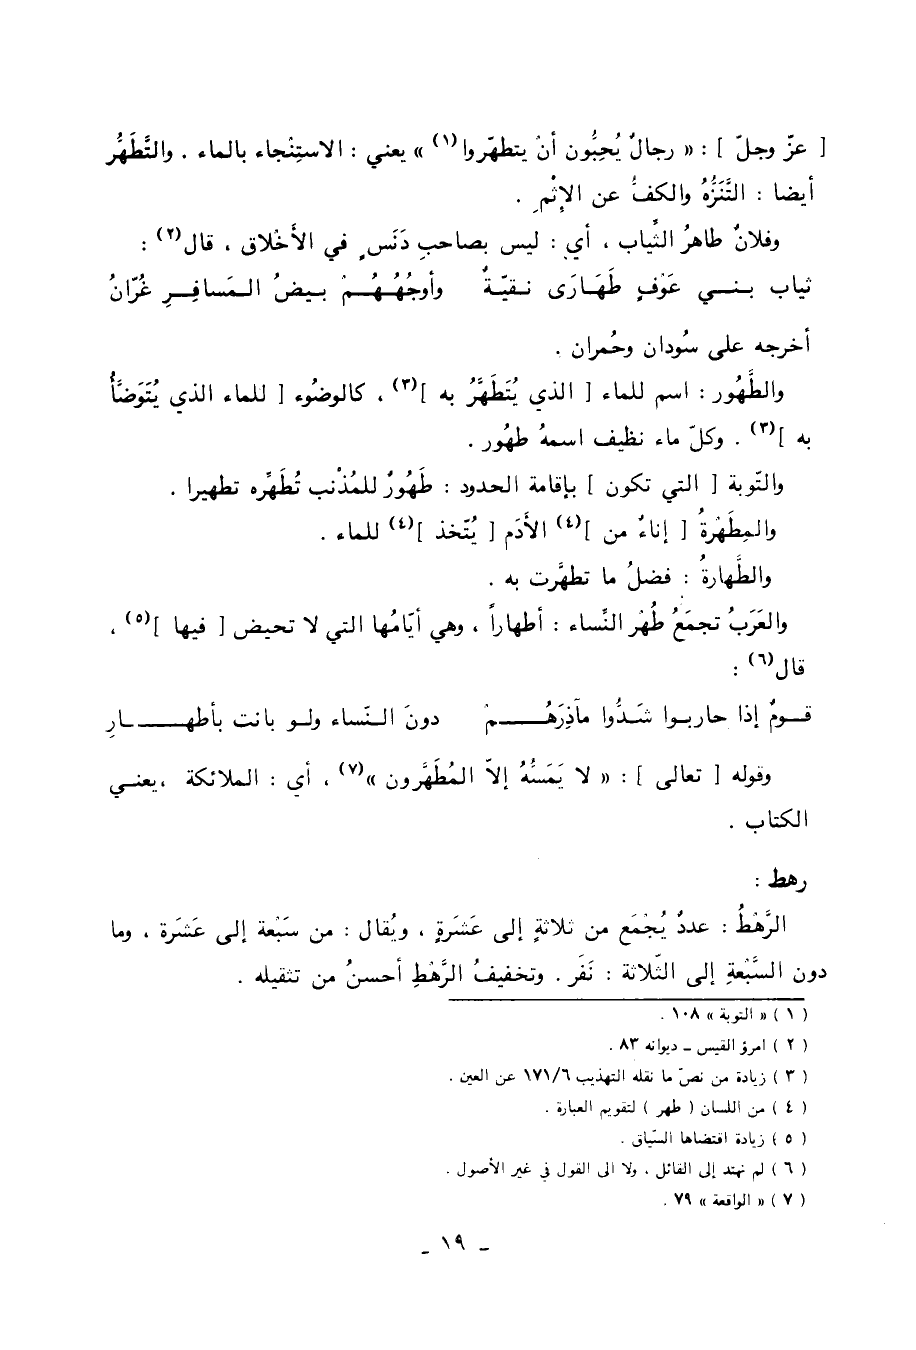 [ عزّ وجلّ ] : « رجالٌ يُحِبُّون أنْ يتطهّروا(١) » يعني : الاستِنْجاء بالماء . والتَّطَهُّر
أيضا : التَّنَزُّهُ والكفُّ عن الإثْمِ .
وفلانٌ طاهرُ الثِّياب ، أي : ليس بصاحبِ دَنَسٍ في الأَخْلاق ، قال(٢) :
ثياب بنـي عَوْفٍ طَهَـارَى نـقيّـةٌ وأوجُهُـهُـمْ بـيضُ الـمَسافِـرِ غُرّانُ
أخرجه على سُودان وحُمران .
والطَّهُور : اسم للماء [ الذي يُتَطَهَّرُ به ](٣) ، كالوضُوء [ للماء الذي يُتَوَضَّأُ
به ](٣) . وكلّ ماء نظيف اسمهُ طهُور .
والتّوبة [ التي تكون ] بإقامة الحدود : طَهُورٌ للمُذْنب تُطَهِّره تطهيرا .
والمِطَهْرةُ [ إناءٌ من ](٤) الأَدَم [ يُتّخذ ](٤) للماء .
والطَّهارةُ : فضلُ ما تطهَّرت به .
والعَرَبُ تجمَعُ طُهْر النِّساء : أطهاراً ، وهي أيّامُها التي لا تحيض [ فيها ](٥) ،
قال(٦) :
قـومٌ إذا حاربـوا شَـدُّوا مآذِرَهُـــمْ دونَ الـنّساء ولـو بانت بأطهـــارِ
وقوله [ تعالى ] : « لا يَمَسُّهُ إلاّ المُطَهَّرون »(٧) ، أي : الملائكة ،يعنـي
الكتاب .
رهط :
الرَّهْطُ : عددٌ يُجْمَع من ثلاثةٍ إلى عَشَرةٍ ، ويُقال : من سَبْعة إلى عَشَرة ، وما
دون السَّبْعةِ إلى الثّلاثة : نَفَر . وتخفيفُ الرَّهْطِ أحسنُ من تثقيله .
( ١ ) « التوبة » ١٠٨ .
( ٢ ) امرؤ القيس ـ ديوانه ٨٣ .
( ٣ ) زيادة من نصّ ما نقله التهذيب ٦/١٧١ عن العين .
( ٤ ) من اللسان ( طهر ) لتقويم العبارة .
( ٥ ) زيادة اقتضاها السّياق .
( ٦ ) لم نهتد إلى القائل ، ولا الى القول في غير الأصول .
( ٧ ) « الواقعة » ٧٩ .
ـ ١٩ ـ